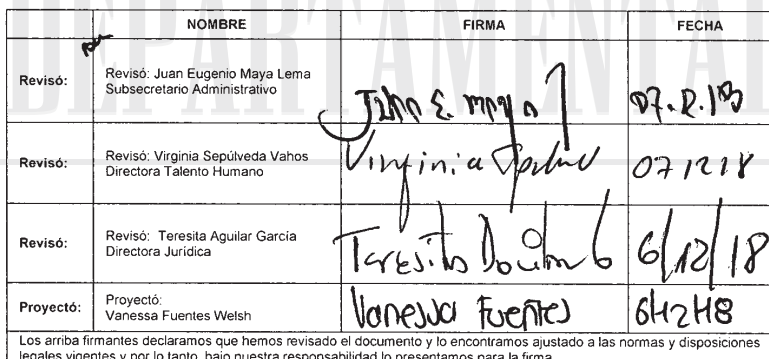 DEPARTAMENTAL
NOMBRE FIRMA FECHA
Revisó: Revisó: Juan Eugenio Maya Lema
Subsecretario Administrativo
Revisó: Revisó: Virginia Sepúlveda Vahos Virginia 07 12 18
Directora Talento Humano
Revisó: Revisó: Teresita Aguilar García Teresita 6/12/18
Directora Jurídica
Proyectó: Proyectó: Vanessa Fuentes 6/12/18
Vanessa Fuentes Welsh
Los arriba firmantes declaramos que hemos revisado el documento y lo encontramos ajustado a las normas y disposiciones
legales vigentes y por lo tanto, bajo nuestra responsabilidad lo presentamos para la firma.